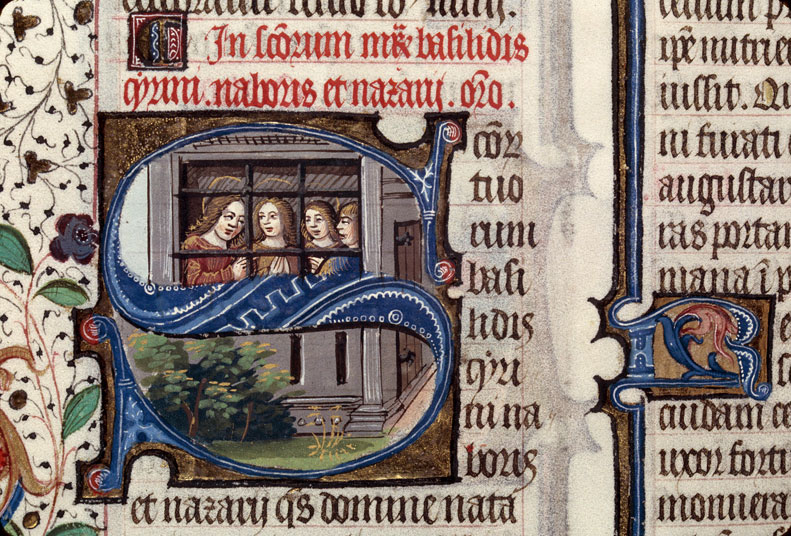 In scōrum mr̄ basilidis
cyrini . naboris et nazarij . oro .
Scōr
tuo
rum
basi
lidis
cyri
ni na
boris
et nazarij qs domine nata
ipē nutrie
iussit. Qu
ni furati
augustar
ras portar
mana ī p
cuidam ce
uxor forti
monuera